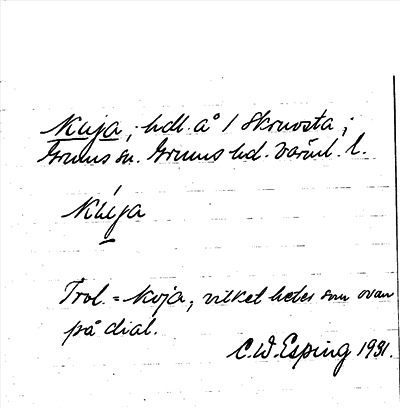 Kuja, hdl. å 1 Skruvsta,
Grums sn. Grums hd. Värml. l.
Kúja
Trol. = koja, vilket heter som ovan
på dial.
C.W. Esping 1931.